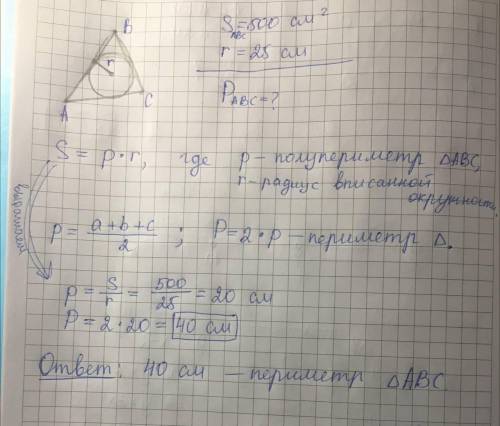 B
r
A
C
S_ABC=500 см²
r = 25 см
P_ABC=?
S = p·r, где p – полупериметр △ABC,
r – радиус вписанной
окружности.
выражаем
p = (a+b+c)/2 ; P=2·p – периметр △.
p = S/r = 500/25 = 20 см
P = 2·20 = 40 см
Ответ: 40 см – периметр △ABC